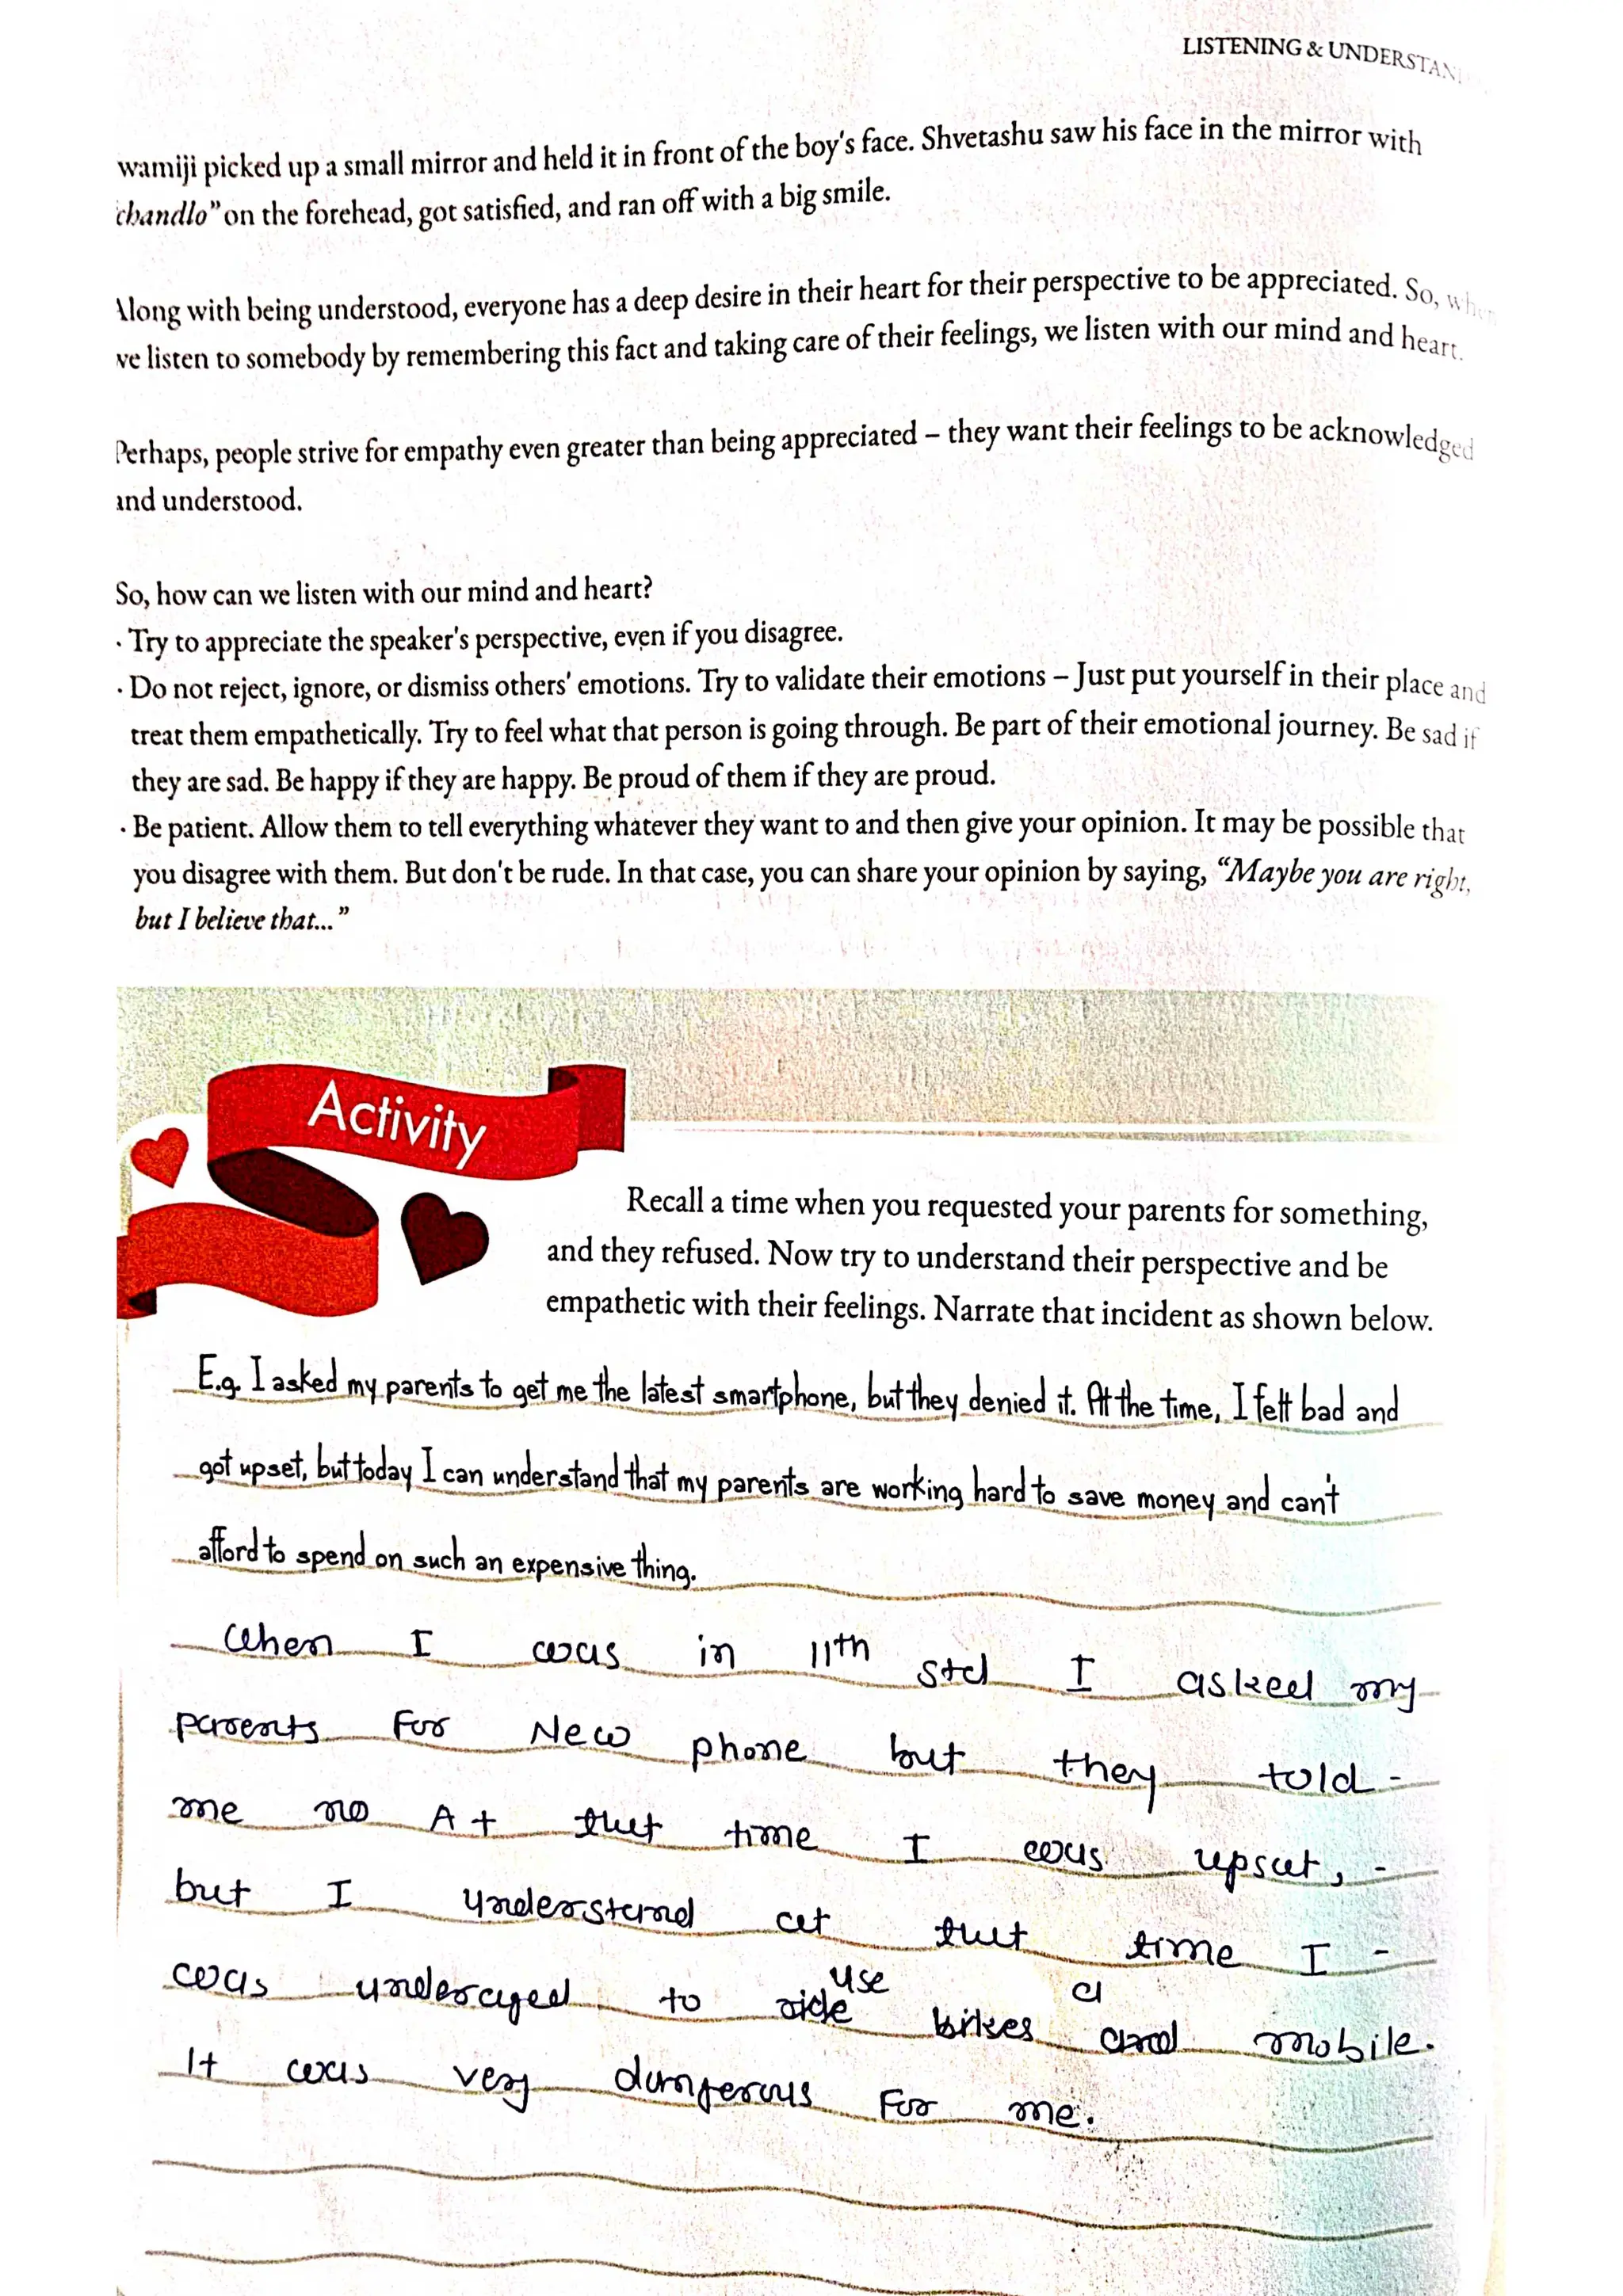 LISTENING & UNDERSTAN
wamiji picked up a small mirror and held it in front of the boy's face. Shvetashu saw his face in the mirror with
chandlo" on the forehead, got satisfied, and ran off with a big smile.
Along with being understood, everyone has a deep desire in their heart for their perspective to be appreciated. So, when
ve listen to somebody by remembering this fact and taking care of their feelings, we listen with our mind and heart.
Perhaps, people strive for empathy even greater than being appreciated – they want their feelings to be acknowledged
and understood.
So, how can we listen with our mind and heart?
· Try to appreciate the speaker's perspective, even if you disagree.
· Do not reject, ignore, or dismiss others' emotions. Try to validate their emotions – Just put yourself in their place and
treat them empathetically. Try to feel what that person is going through. Be part of their emotional journey. Be sad if
they are sad. Be happy if they are happy. Be proud of them if they are proud.
· Be patient. Allow them to tell everything whatever they want to and then give your opinion. It may be possible that
you disagree with them. But don't be rude. In that case, you can share your opinion by saying, "Maybe you are right,
but I believe that..."
Activity
Recall a time when you requested your parents for something,
and they refused. Now try to understand their perspective and be
empathetic with their feelings. Narrate that incident as shown below.
E.g. I asked my parents to get me the latest smartphone, but they denied it. At the time, I felt bad and
got upset, but today I can understand that my parents are working hard to save money and can't
afford to spend on such an expensive thing.
When I was in 11th std I asked my
parents For New phone but they told -
me no At that time I was upset, -
but I understand at that time I -
was underaged to ride use bikes and a mobile.
It was very dangerous For me.